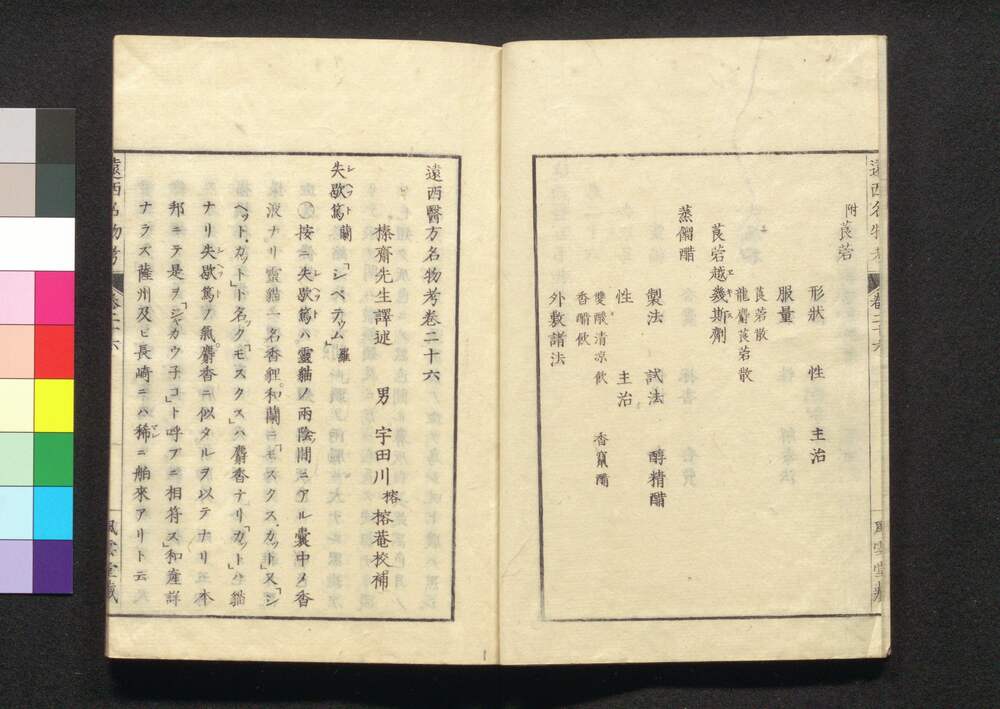 遠西名物考
卷二十六
風雲堂藏
附 莨菪
形狀 性 主治
服量
莨菪散
龍麝莨菪散
莨菪越幾斯劑
蒸餾醋
製法 試法 醇精醋
性 主治
雙酸清凉飲 香竄醋
香醋飲
外敷諸法
遠西醫方名物考卷二十六
榛齋先生譯述 男 宇田川榕 榕菴校補
失歇篤蘭「シベテュム」羅
按ニ失歇篤ハ靈貓ノ兩陰間ニアル嚢中ノ香
液ナリ靈貓一名香狸和蘭ニ「モスクス、カット」又「シ
ヘット、カット」ト名ク「モスクス」ハ麝香ナリ「カット」ハ貓
ナリ失歇篤ノ氣麝香ニ似タルヲ以テナリ本
邦ニテ是ヲ「ジャカウ子コ」ト呼ブニ相符ス和産詳
ナラズ薩州及ヒ長崎ニハ稀ニ舶來アリト云
遠西名物考
卷二十六
風雲堂藏